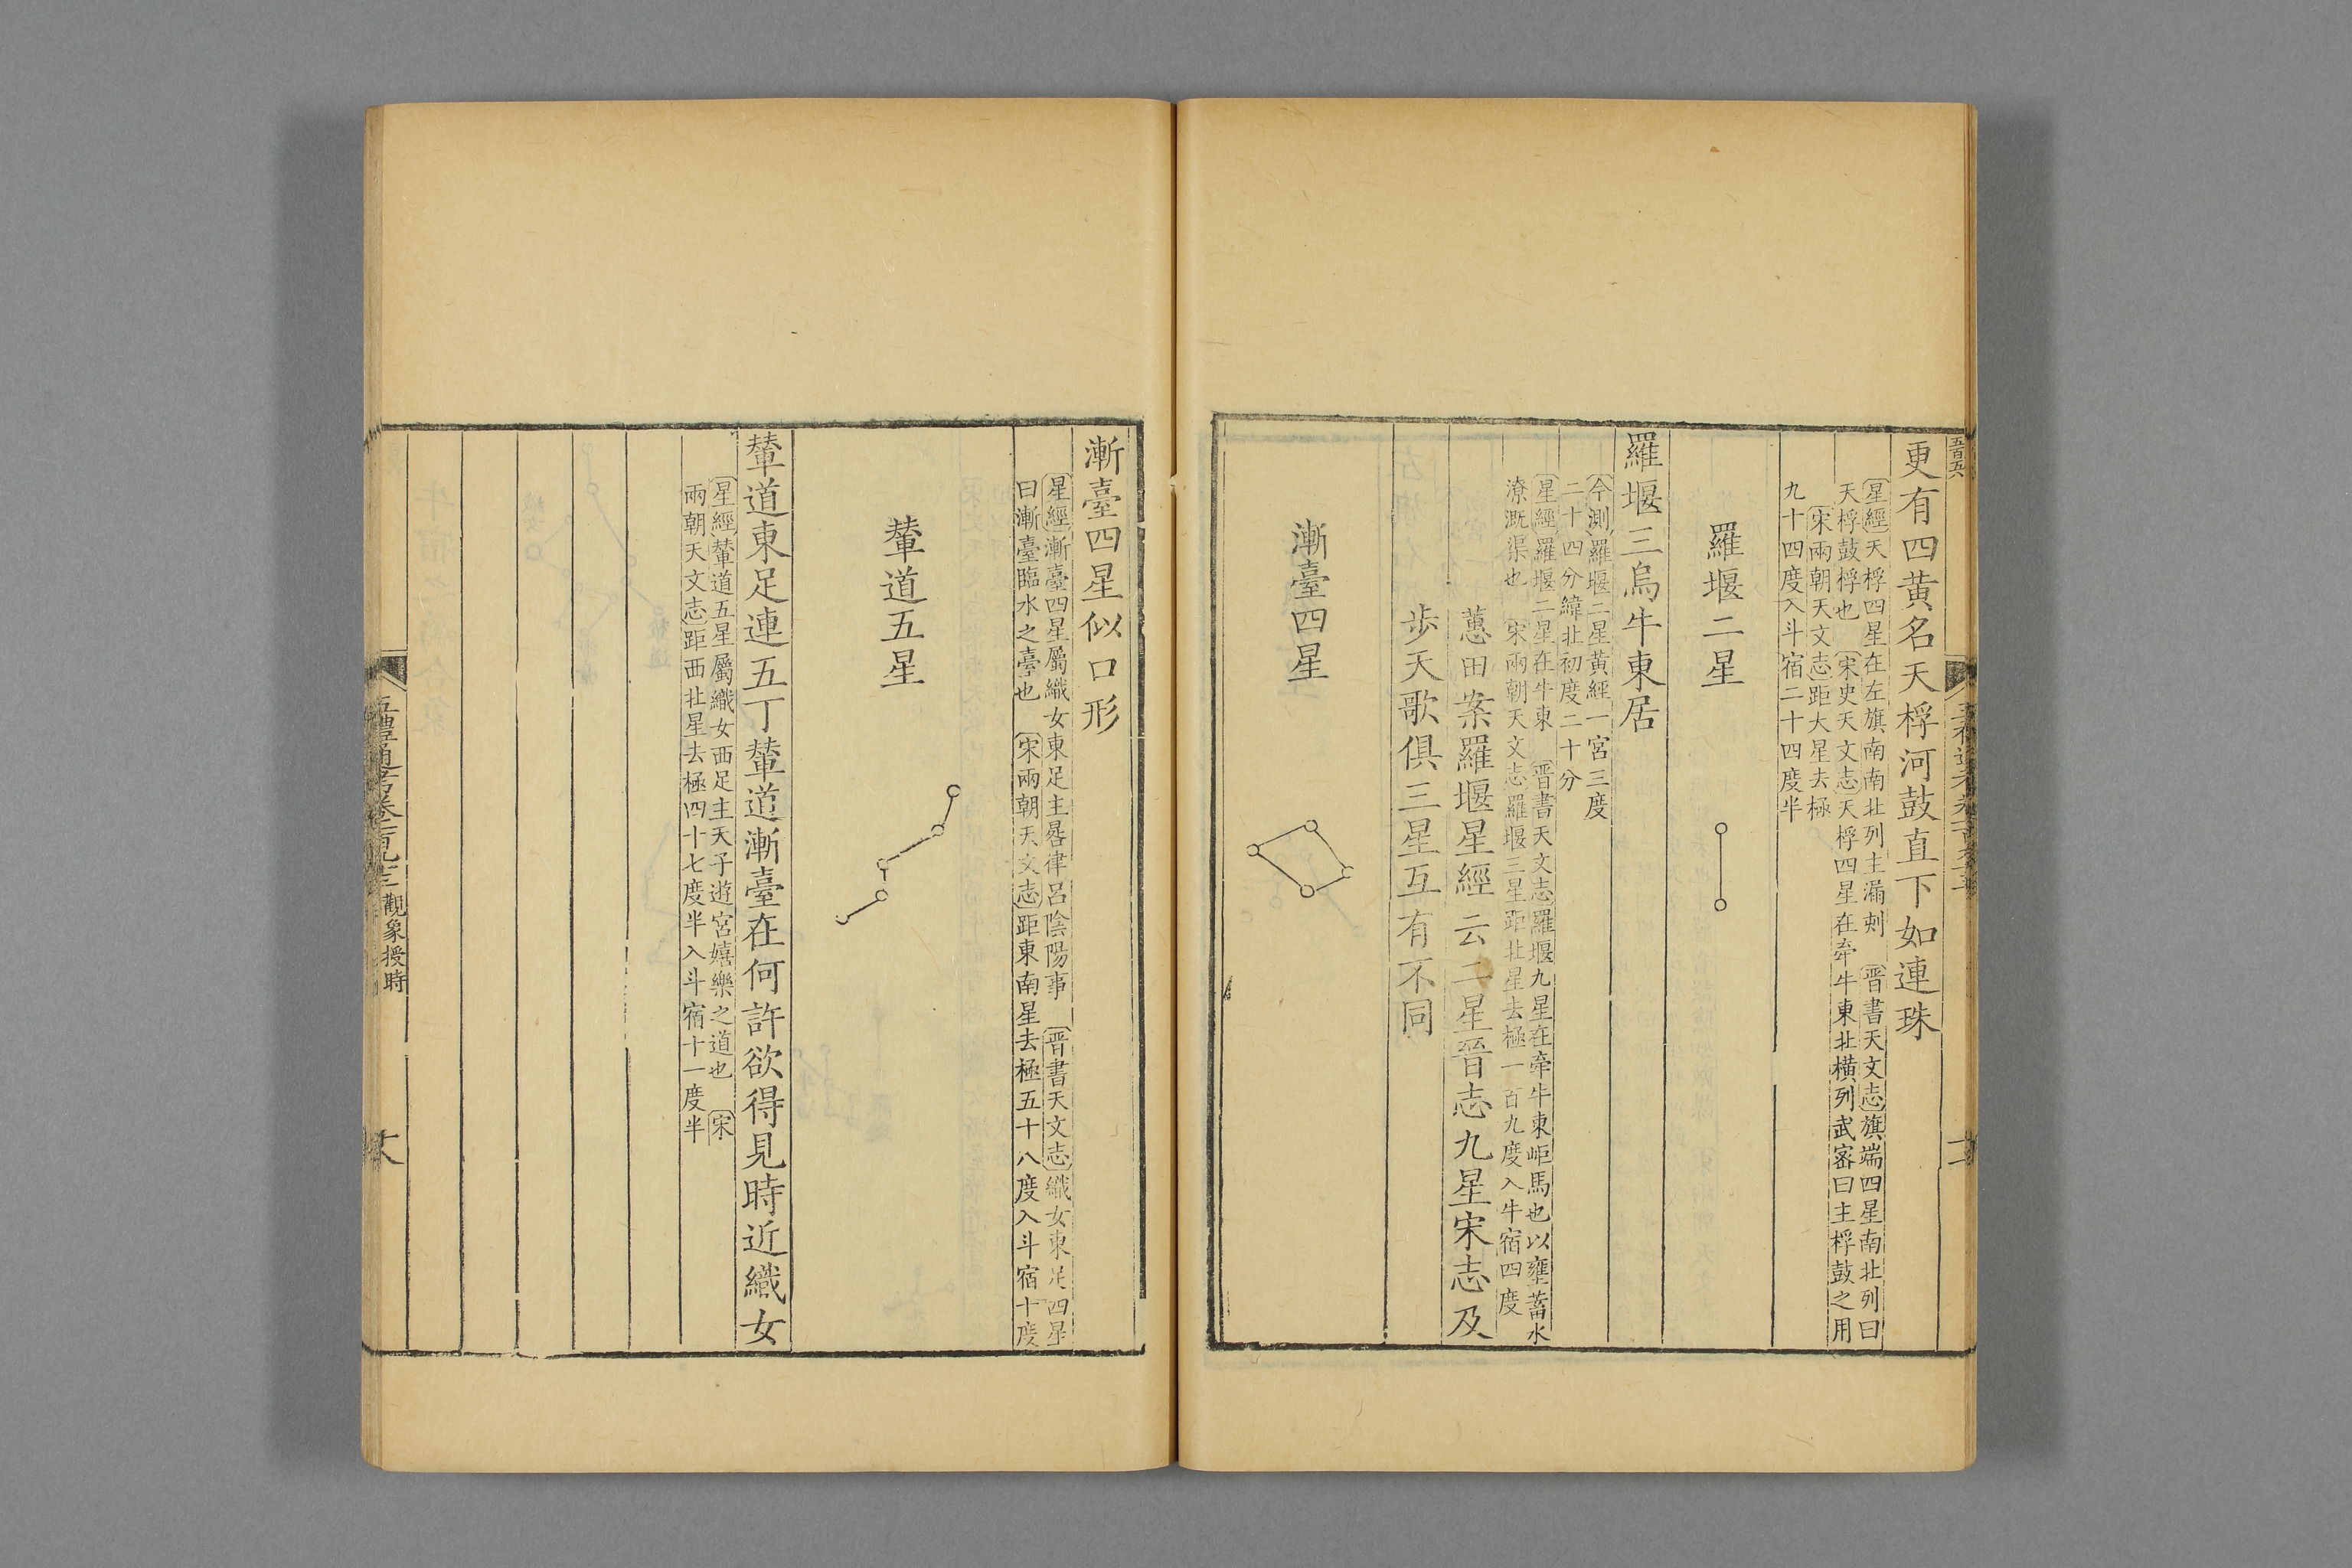 五百五六
更有四黃名天桴河鼓直下如連珠
星經天桴四星在左旗南南北列主漏刻　晉書天文志旗端四星南北列曰
天桴鼓桴也　宋史天文志天桴四星在牽牛東北橫列武密曰主桴鼓之用
宋兩朝天文志距大星去極
九十四度入斗宿二十四度半
羅堰二星
羅堰三烏牛東居
今測羅堰二星黃經一宮三度
二十四分緯北初度二十分
星經羅堰二星在牛東　晉書天文志羅堰九星在牽牛東岠馬也以壅蓄水
潦溉渠也　宋兩朝天文志羅堰三星距北星去極一百九度入牛宿四度
蕙田案羅堰星經云二星晉志九星宋志及
歩天歌俱三星互有不同
漸臺四星
漸臺四星似口形
星經漸臺四星屬織女東足主晷律呂陰陽事　晉書天文志織女東足四星
曰漸臺臨水之臺也　宋兩朝天文志距東南星去極五十八度入斗宿十度
輦道五星
輦道東足連五丁輦道漸臺在何許欲得見時近織女
星經輦道五星屬織女西足主天子遊宮嬉樂之道也　宋
兩朝天文志距西北星去極四十七度半入斗宿十一度半
五禮通考卷一百九十三觀象授時